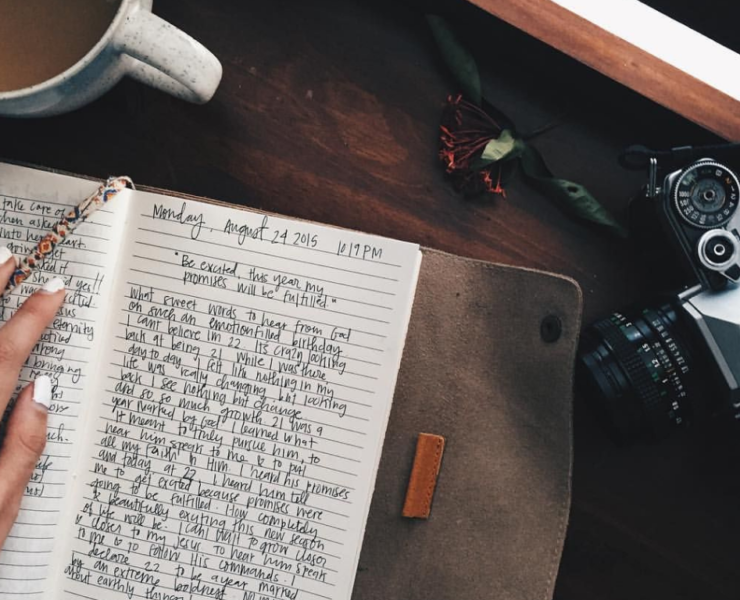 take care of
when asked
into her heart
yes!!
Jesus
eternity
bringing
Monday, August 24 2015 10:19 PM
"Be excited, this year my
promises will be fulfilled."
What sweet words to hear from God
on such an emotion filled birthday.
I cant believe im 22. Its crazy looking
back at being 21. While I was there
day to day I felt like nothing in my
life was really changing, but looking
back I see nothing but change
and so so much growth. 21 was a
year marked by God. I learned what
it meant to truly pursue him, to
hear him speak to me & to put
all my faith in Him. I heard his promises
and today at 22 I heard him tell
me to get excited because promises were
going to be fulfilled. How completely
& beautifully exciting this new season
of life will be. I cant wait to grow closer
& closer to my Jesus, to hear him speak
to me & to follow His commands. I
declare 22 to be a year marked
by an extreme boldness.
about earthly things